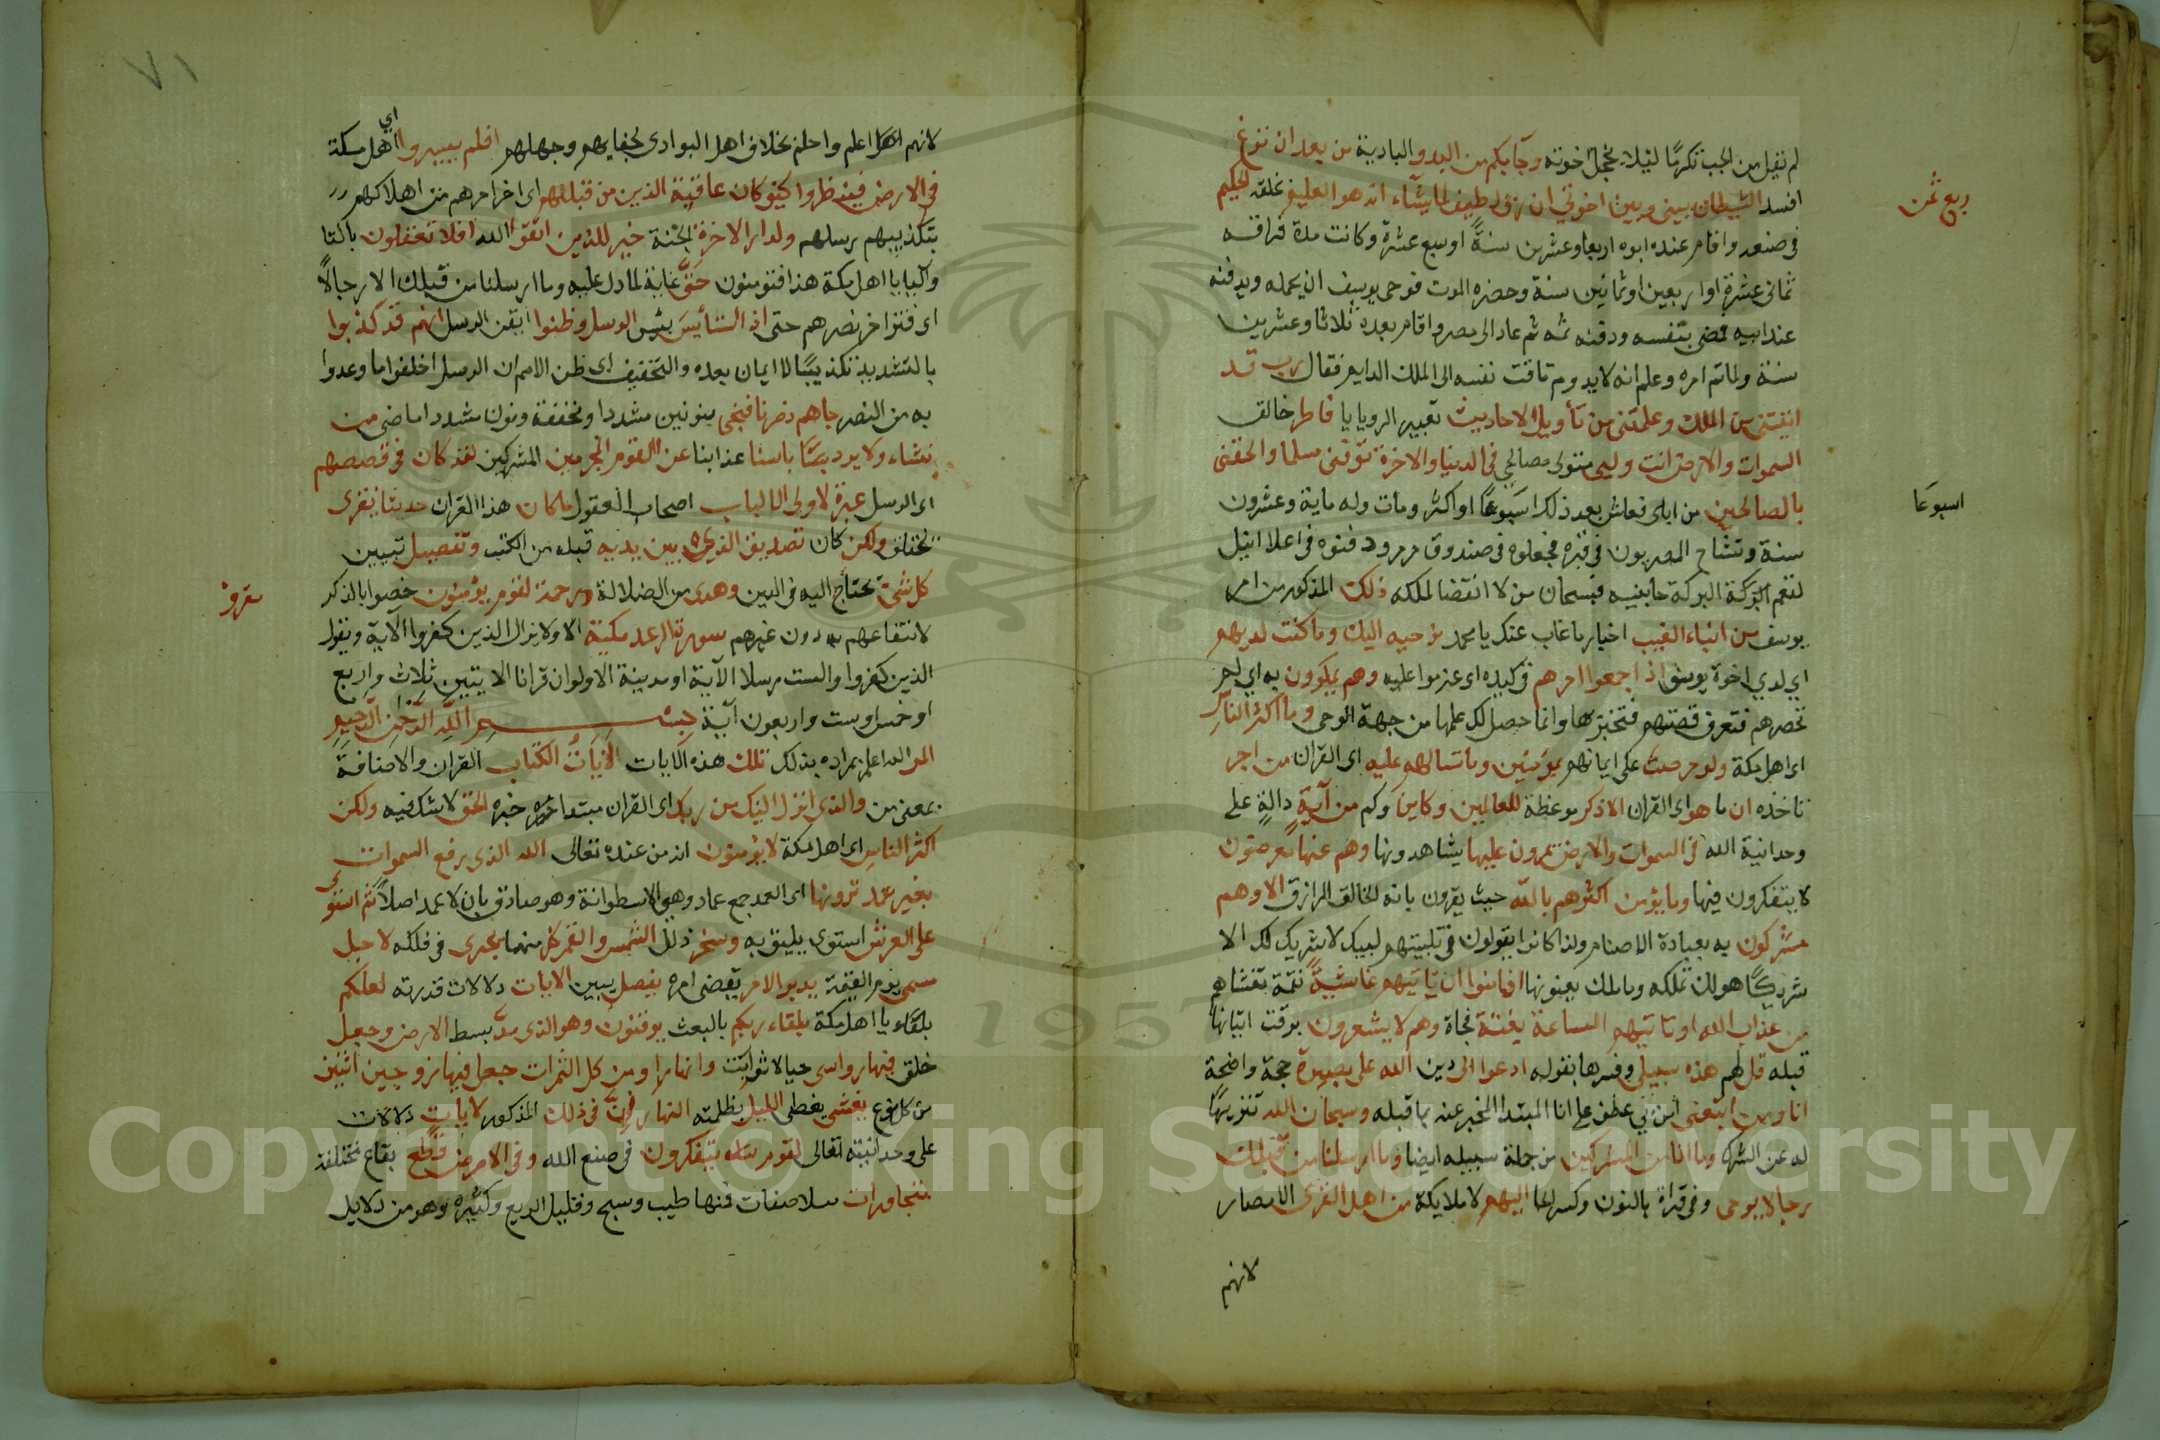 لم تقبل من الجب تكرمًا ليلا يخجل اخوته وجآبكم من البدو البادية من بعد ان نزغ
افسد الشيطان بيني وبين اخوتي ان ربي لطيف لما يشاء انه هو العليم بخلقه الحكيم
في صنعه واقام عنده ابوه اربعا وعشرين سنةً او سبع عشرة وكانت مدة فراقه
ثماني عشرة او اربعين او ثمانين سنة وحضره الموت فوصى يوسف ان يحمله ويدفنه
عند ابيه فمضى بنفسه ودفنه ثمه ثم عاد الى مصر واقام بعده ثلاثا وعشرين
سنة ولما تم امره وعلم انه لا يدوم تاقت نفسه الى الملك الدايم فقال رب قد
اتيتني من الملك وعلمتني من تأويل الاحاديث تعبير الرويا يا فاطر خالق
السموات والارض انت وليى متولي مصالحي في الدنيا والاخرة توفني مسلما والحقني
بالصالحين من ابائى فعاش بعد ذلك اسبوعًا او اكثر ومات وله ماية وعشرون
سنة وتشاح المصريون في قبره فجعلوه في صندوق مرمر ودفنوه في اعلا النيل
لتعم البركة البركة جانبيه فسبحان من لا انقضا لملكه ذلك المذكور من امر
يوسف من انباء الغيب اخبار ما غاب عنك يا محمد نوحيه اليك وما كنت لديهم
اي لدي اخوة يوسف اذ اجمعوا امرهم في كيده اى عزموا عليه وهم يمكرون به اي لم
تحضرهم فتعرف قصتهم فتخبر بها وانما حصل لك علمها من جهة الوحى وما اكثر الناس
اى اهل مكة ولو حرصت على ايمانهم بمؤمنين وما تسالهم عليه اى القران من اجر
تاخذه ان ما هو اى القران الا ذكر موعظة للعالمين وكاين وكم من آية دالةٍ على
وحدانية الله في السموات والارض يمرون عليها يشاهدونها وهم عنها معرضون
لا يتفكرون فيها وما يؤمن اكثرهم بالله حيث يقرون بانه الخالق الرازق الا وهم
مشركون به بعبادة الاصنام ولذا كانوا يقولون في تلبيتهم لبيك لا شريك لك الا
شريكًا هو لك تملكه وما ملك يعنونها افامنوا ان تاتيهم غاشيةٌ نقمة تغشاهم
من عذاب الله او تاتيهم الساعة بغتة فجاة وهم لا يشعرون بوقت اتيانها
قبله قل لهم هذه سبيلى وفسرها بقوله ادعوا الى دين الله على بصيرة حجة واضحة
انا ومن اتبعنى امن بي عطف على انا المبتدا المخبر عنه بما قبله وسبحان الله تنزيهًا
له عن الشرك وما انا من المشركين من جملة سبيله ايضا وما ارسلنا من قبلك
رجالا يوحى وفي قراة بالنون وكسر الحا اليهم لا ملايكة من اهل القرى الامصار
لانهم
ربع ثمن
اسبوعا
٧١
لانهم اعلم واحلم بخلاف اهل البوادى لجفايهم وجهلهم افلم يسيروا اى اهل مكة
في الارض فينظروا كيف كان عاقبة الذين من قبلهم اى اخر امرهم من اهلاكهم
بتكذيبهم رسلهم ولدار الاخرة الجنة خير للذين اتقوا الله افلا تعقلون بالتا
واليا يا اهل مكة هذا فتومنون حتّى غاية لما دل عليه وما ارسلنا من قبلك الا رجالاً
اى فتراخى نصرهم حتى اذا استأيس يئس الرسل وظنوا ايقن الرسل انهم قد كذبوا
بالتشديد تكذيبًا لا ايمان بعده والتخفيف اى ظن الامم ان الرسل اخلفوا ما وعدوا
به من النصر جاهم نصرنا فنجي بنونين مشددا ومخففة ونون مشددا ماضى من
نشاء ولا يرد باسنا عذابنا عن القوم المجرمين المشركين لقد كان في قصصهم
اى الرسل عبرة لاولى الالباب اصحاب العقول ما كان هذا القران حديثا يفترى
يختلق ولكن كان تصديق الذي بين يديه قبله من الكتب وتفصيل تبيين
كل شئ يحتاج اليه في الدين وهدى من الضلالة ورحمة لقوم يؤمنون خصوا بالذكر
لانتفاعهم به دون غيرهم سورة الرعد مكية الا ولا يزال الذين كفروا الآية ويقول
الذين كفروا والست مرسلا الآية او مدينة الا ولو ان قرانا الايتين ثلاث واربع
او خمس او ست واربعون آية بسم الله الرحمن الرحيم
المر الله اعلم بمراده بذلك تلك هذه الايات الآيات الكتاب القران والاضافة
بمعنى من والذى انزل اليك من ربك اى القران مبتدا خبره الحق لا شك فيه ولكن
اكثر الناس اى اهل مكة لا يؤمنون انه من عنده تعالى الله الذى رفع السموات
بغير عمد ترونها اى العمد جمع عماد وهي الاسطوانة وهو صادق بان لا عمد اصلاً ثم استوى
على العرش استوى يليق به وسخر ذلل الشمس والقمر كل منهما يجرى في فلكه لاجل
مسمى يوم القيمة يدبر الامر يقضى امره يفصل يبين الايات دلالات قدرته لعلكم
بلقاء يا اهل مكة بلقاء ربكم بالبعث يوقنون وهو الذى مدّ بسط الارض وجعل
خلق فيها رواسى جبالا ثوابت وانهارا ومن كل الثمرات جعل فيها زوجين اثنين
من كل نوع يغشى يغطى الليل بظلمته النهار ان في ذلك المذكور لايات دلالات
على وحدانيته تعالى لقوم يتفكرون في صنع الله وفي الارض قطع بقاع مختلفة
متجاورات متلاصقات فمنها طيب وسبخ وقليل الريع وكثيره وهو من دلايل
Copyright © King Saud University
1957